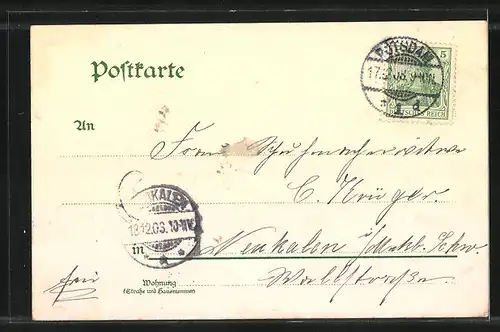 Postkarte
POTSDAM
5
17.12.03. 9-10V.
* 1 d
DEUTSCHES REICH
An
Frau Schuhmacherwitwe
C. Krüger.
NEUKALEN
18.12.03. 10-11V.
Neukalen
frei
Wallstraße.
Wohnung
(Straße und Hausnummer)